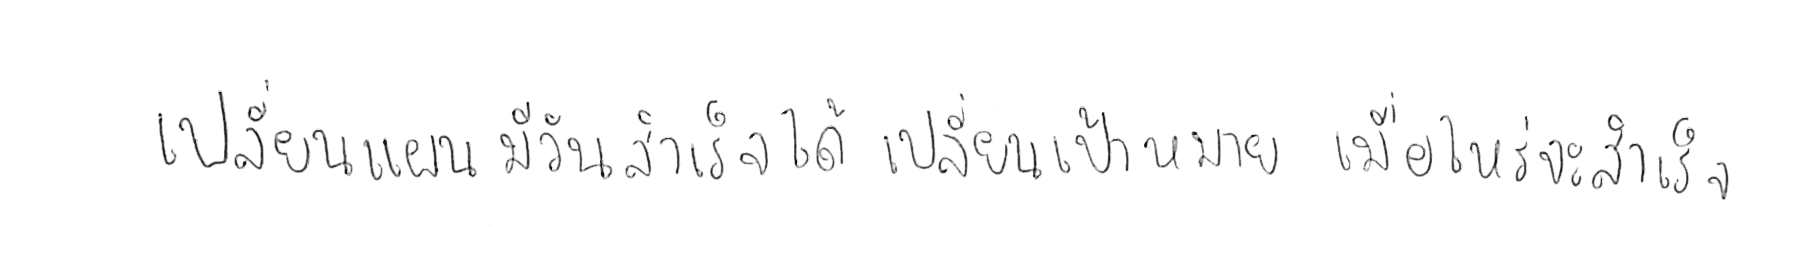 เปลี่ยนแผนมีวันสำเร็จได้ เปลี่ยนเป้าหมาย เมื่อไหร่จะสำเร็จ